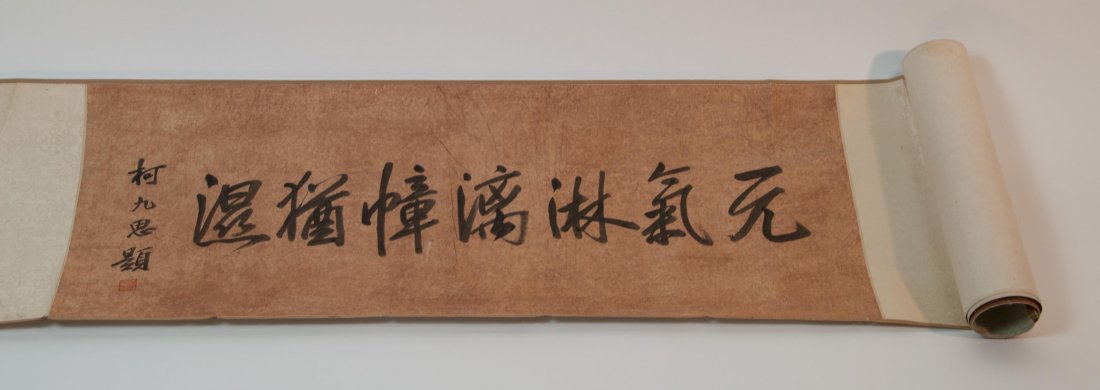 元氣淋漓幛猶濕
柯九思題